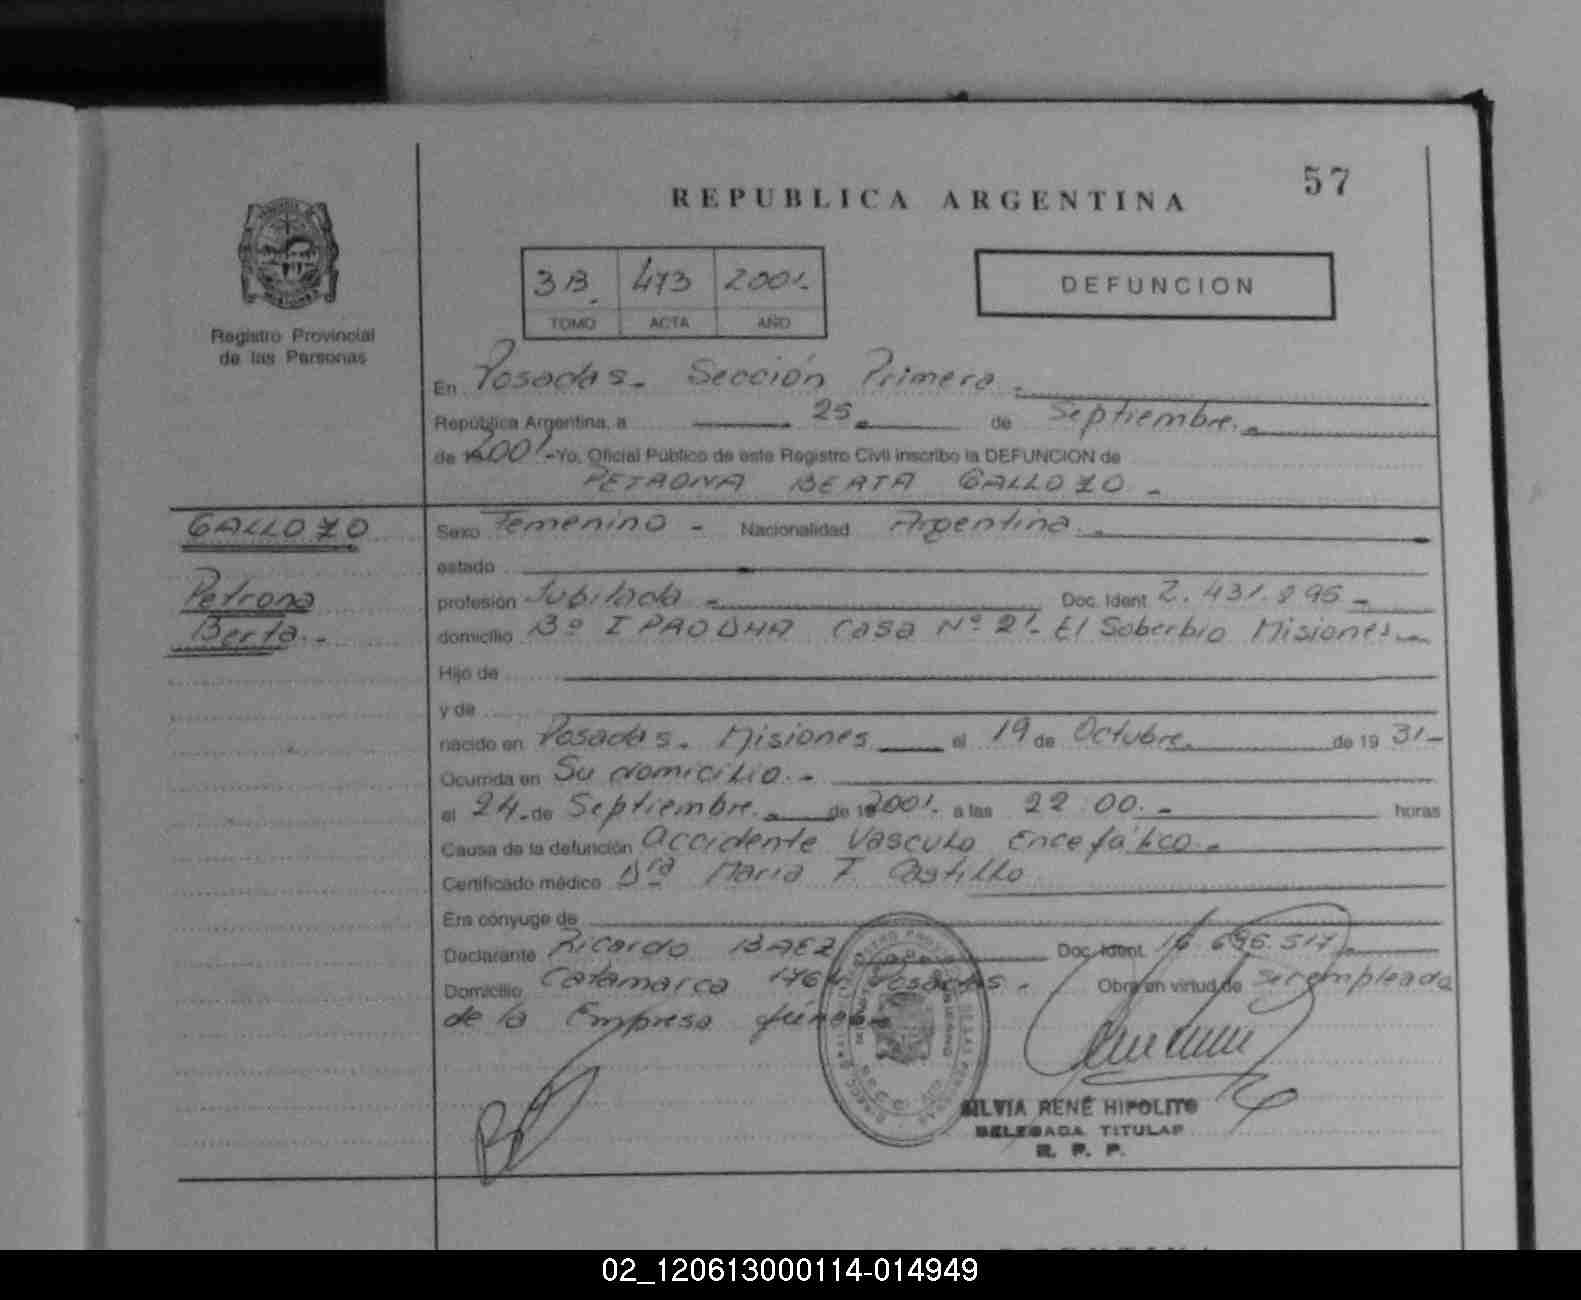 57
REPUBLICA ARGENTINA
3B. 473 2001.
TOMO ACTA AÑO
DEFUNCION
Registro Provincial
de las Personas
En Posadas. Sección Primera
República Argentina, a 25 de Septiembre.
de 2001.- Yo, Oficial Público de este Registro Civil inscribo la DEFUNCION de
PETRONA BERTA GALLOZO -
GALLOZO
Petrona
Berta.-
Sexo Femenino - Nacionalidad Argentina.
estado
profesión Jubilada - Doc. Ident 2.431.895 -
domicilio Bº IPRODHA Casa Nº 21. El Soberbio Misiones
Hijo de
y de
nacido en Posadas. Misiones el 19 de Octubre. de 19 31-
Ocurrida en Su domicilio.-
el 24 de Septiembre. de 2001. a las 22:00.- horas
Causa de la defunción Accidente Vasculo Encefálico.-
Certificado médico Dra Maria T Castillo
Era cónyuge de
Declarante Ricardo BAEZ Doc. Ident. 16.696.517
Domicilio Catamarca 1764 Posadas. Obra en virtud de ser empleada
de la Empresa fúnebre
SILVIA RENÉ HIPOLITO
DELEGADA TITULAR
R. P. P.
02_120613000114-014949